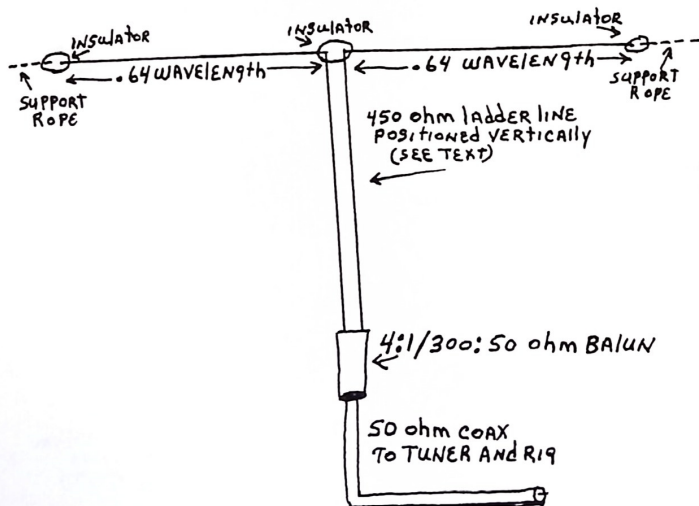 INSULATOR
INSULATOR
INSULATOR
.64 WAVELENGTH
.64 WAVELENGTH
SUPPORT
ROPE
SUPPORT
ROPE
450 ohm LADDER LINE
POSITIONED VERTICALLY
(SEE TEXT)
4:1/300:50 ohm BALUN
50 ohm COAX
TO TUNER AND RIG